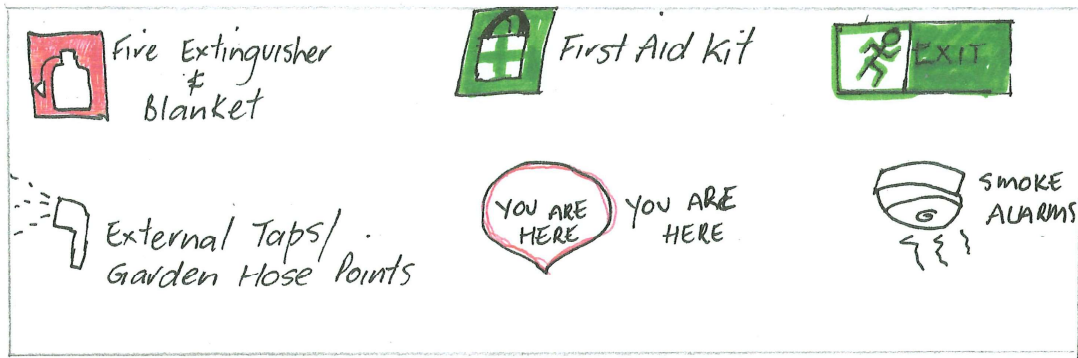 Fire Extinguisher
&
Blanket
First Aid Kit
EXIT
External Taps/
Garden Hose Points
YOU ARE
HERE
YOU ARE
HERE
SMOKE
ALARMS